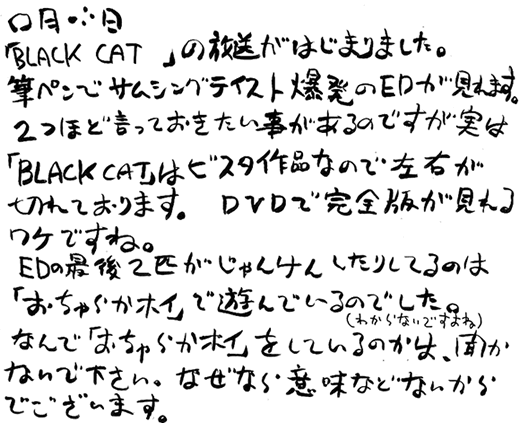 □月∴日
「BLACK CAT 」の放送がはじまりました。
筆ペンでサムシングテイスト爆発のEDが見れます。
2つほど言っておきたい事があるのですが実は
「BLACK CAT」はビスタ作品なので左右が
切れております。 DVDで完全版が見れる
ワケですね。
EDの最後2匹がじゃんけんしたりしてるのは
「おちゃらかホイ」で遊んでいるのでした。
(わからないですよね)
なんで「おちゃらかホイ」をしているのかは、聞か
ないで下さい。なぜなら意味などないから
でございます。